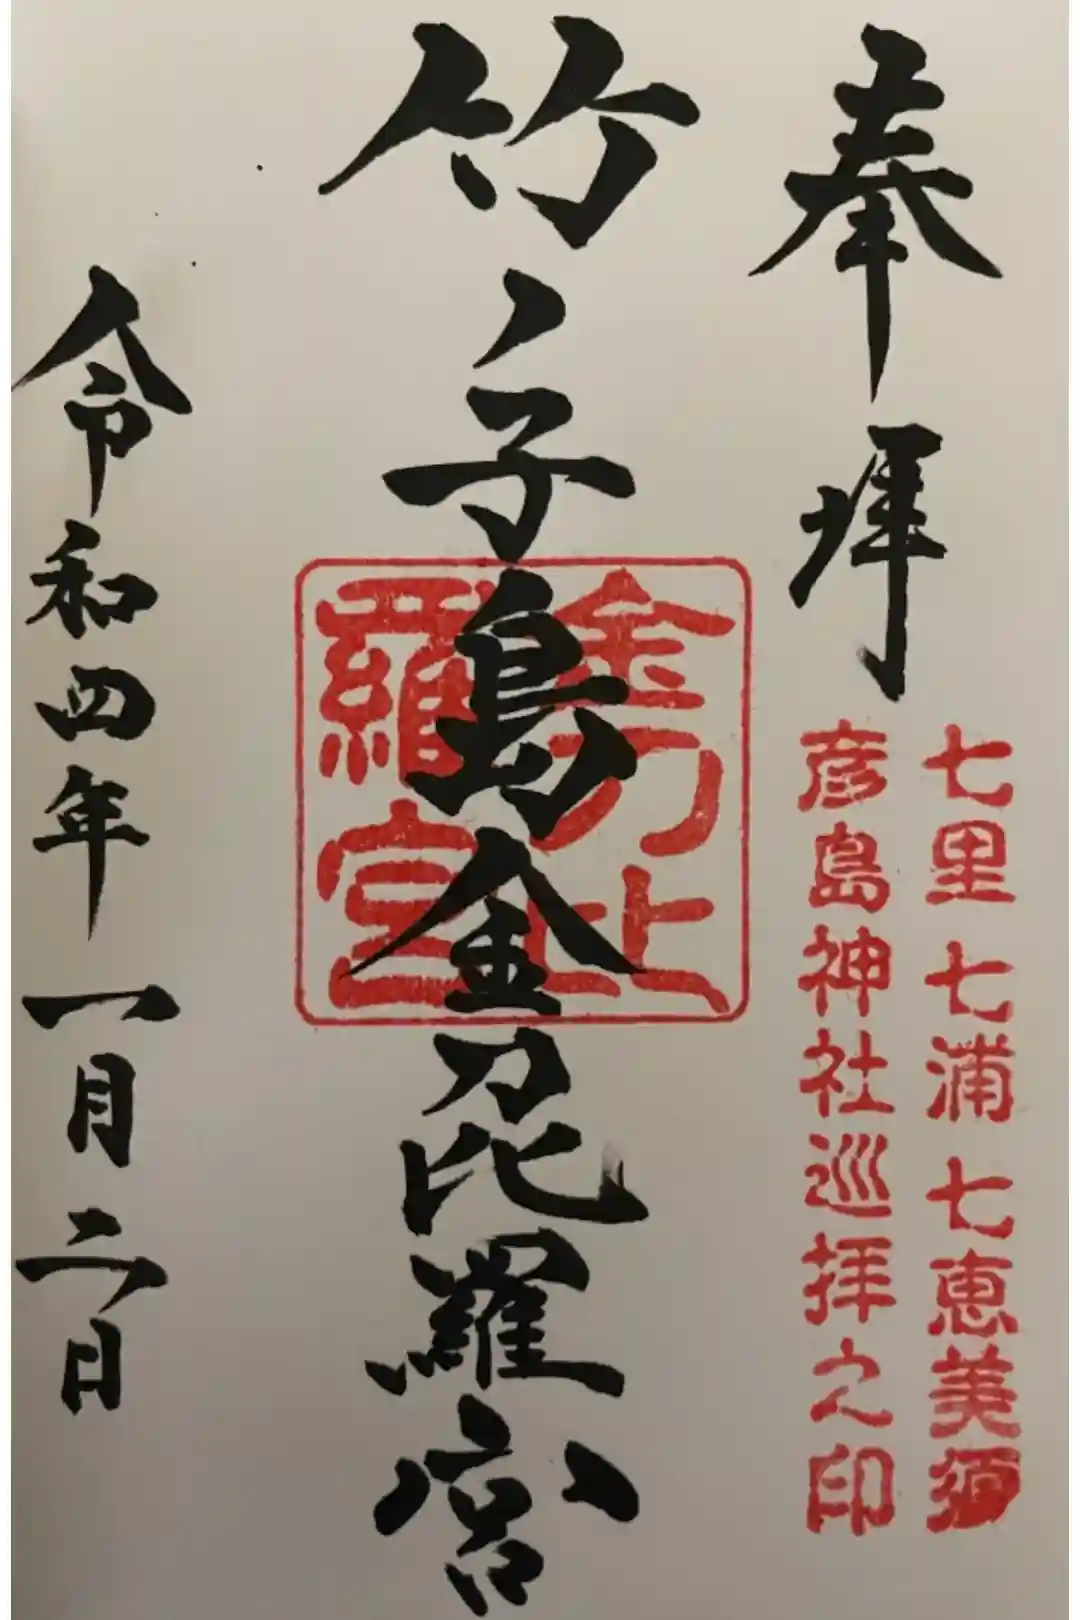 奉拝
七里七浦七恵美須
彦島神社巡拝之印
竹ノ子島金刀比羅宮
金刀比
羅宮
令和四年一月二日